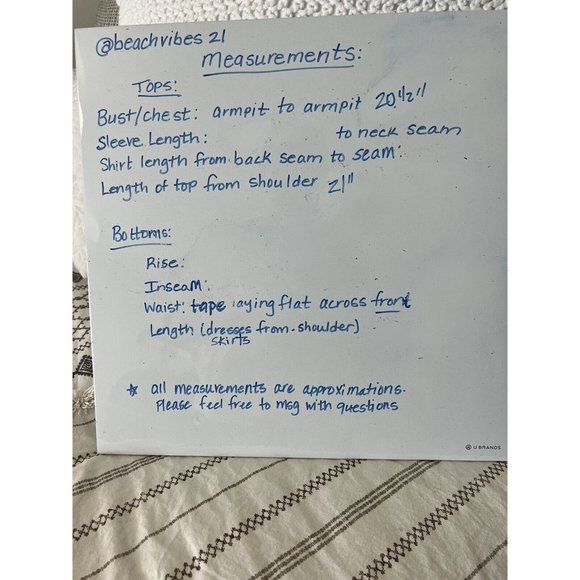 @beachvibes 21
Measurements:
Tops:
Bust/chest: armpit to armpit 20 1/2"
Sleeve Length: to neck seam
Shirt length from back seam to seam:
Length of top from shoulder 21"
Bottoms:
Rise:
Inseam:
Waist: tape laying flat across front
Length (dresses from shoulder)
skirts
☆ all measurements are approximations.
Please feel free to msg with questions
U BRANDS